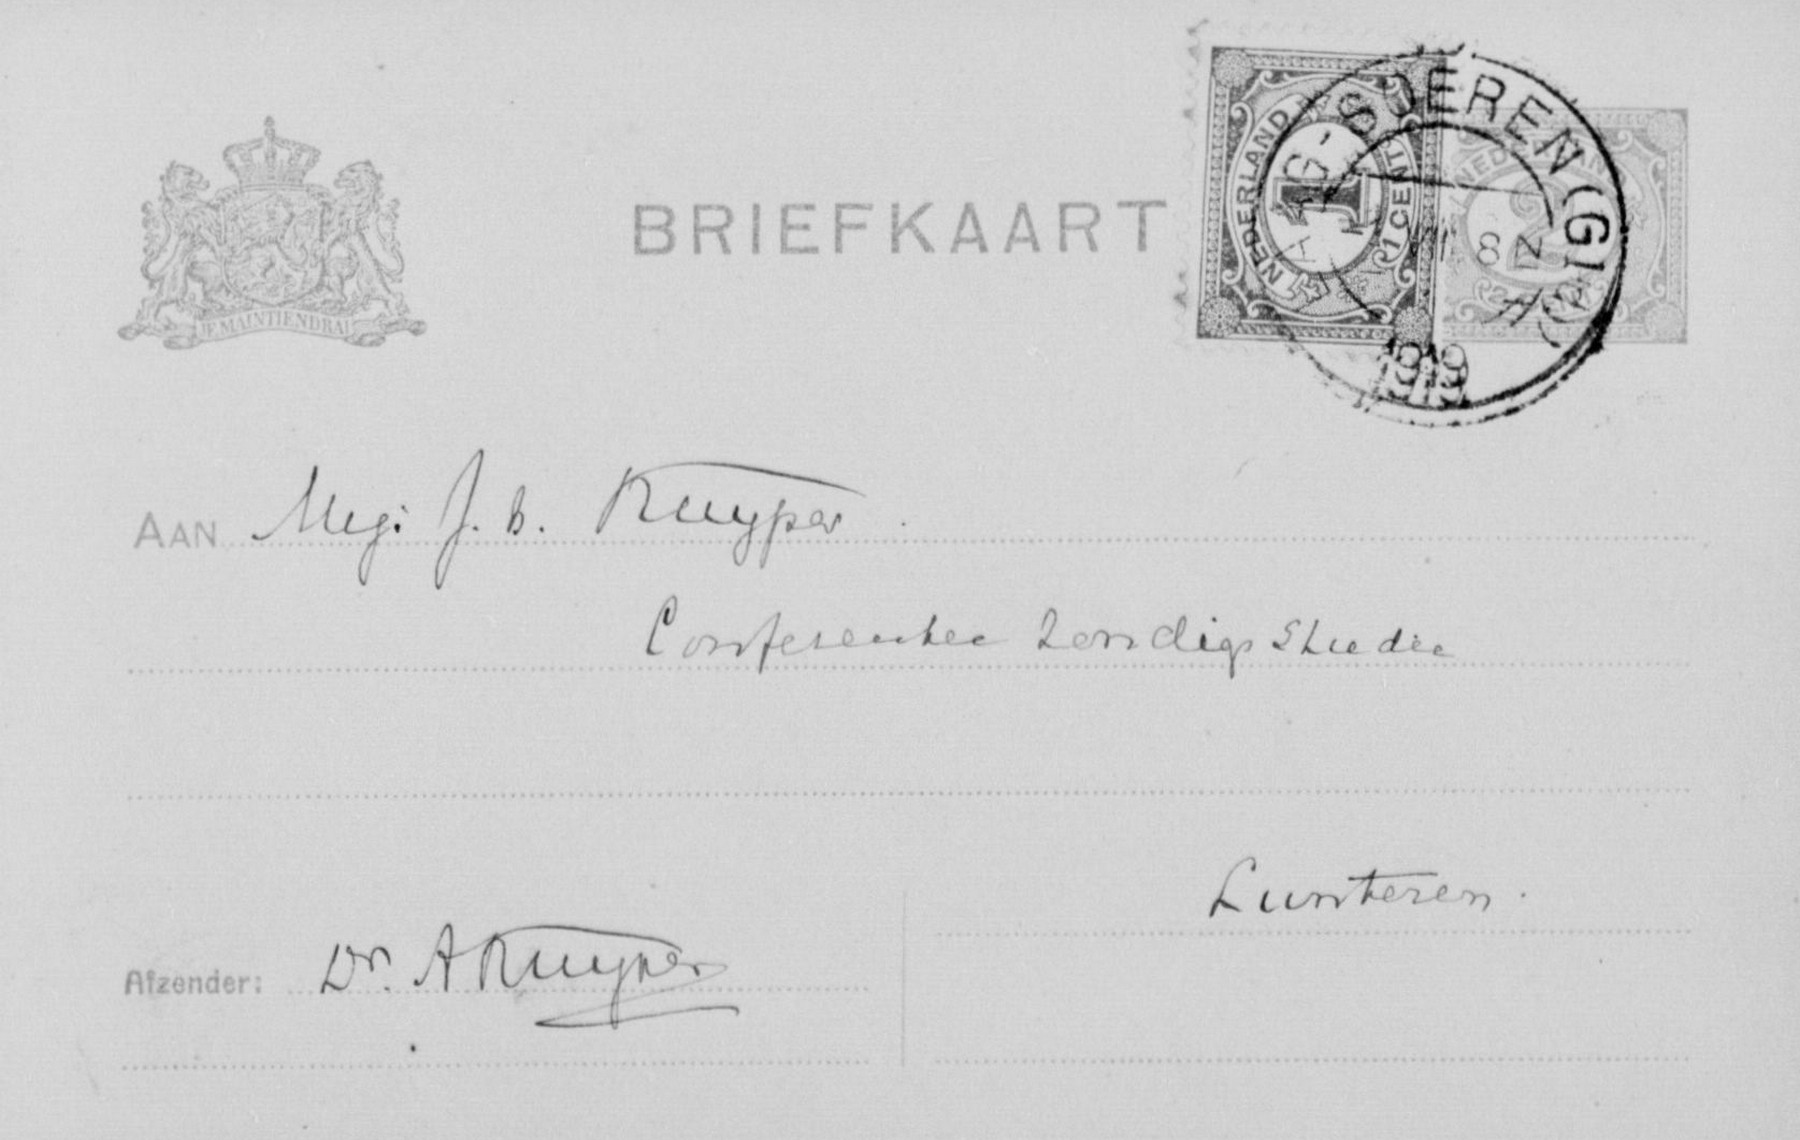 BRIEFKAART
NEDERLAND
1
1 CENT
G-SOEREN (Gld)
8 N
1919
JE MAINTIENDRAI
AAN Mej: J. H. Kuyper.
Conferentie Zendigs Studie
Lunteren.
Afzender: Dr. A Kuyper